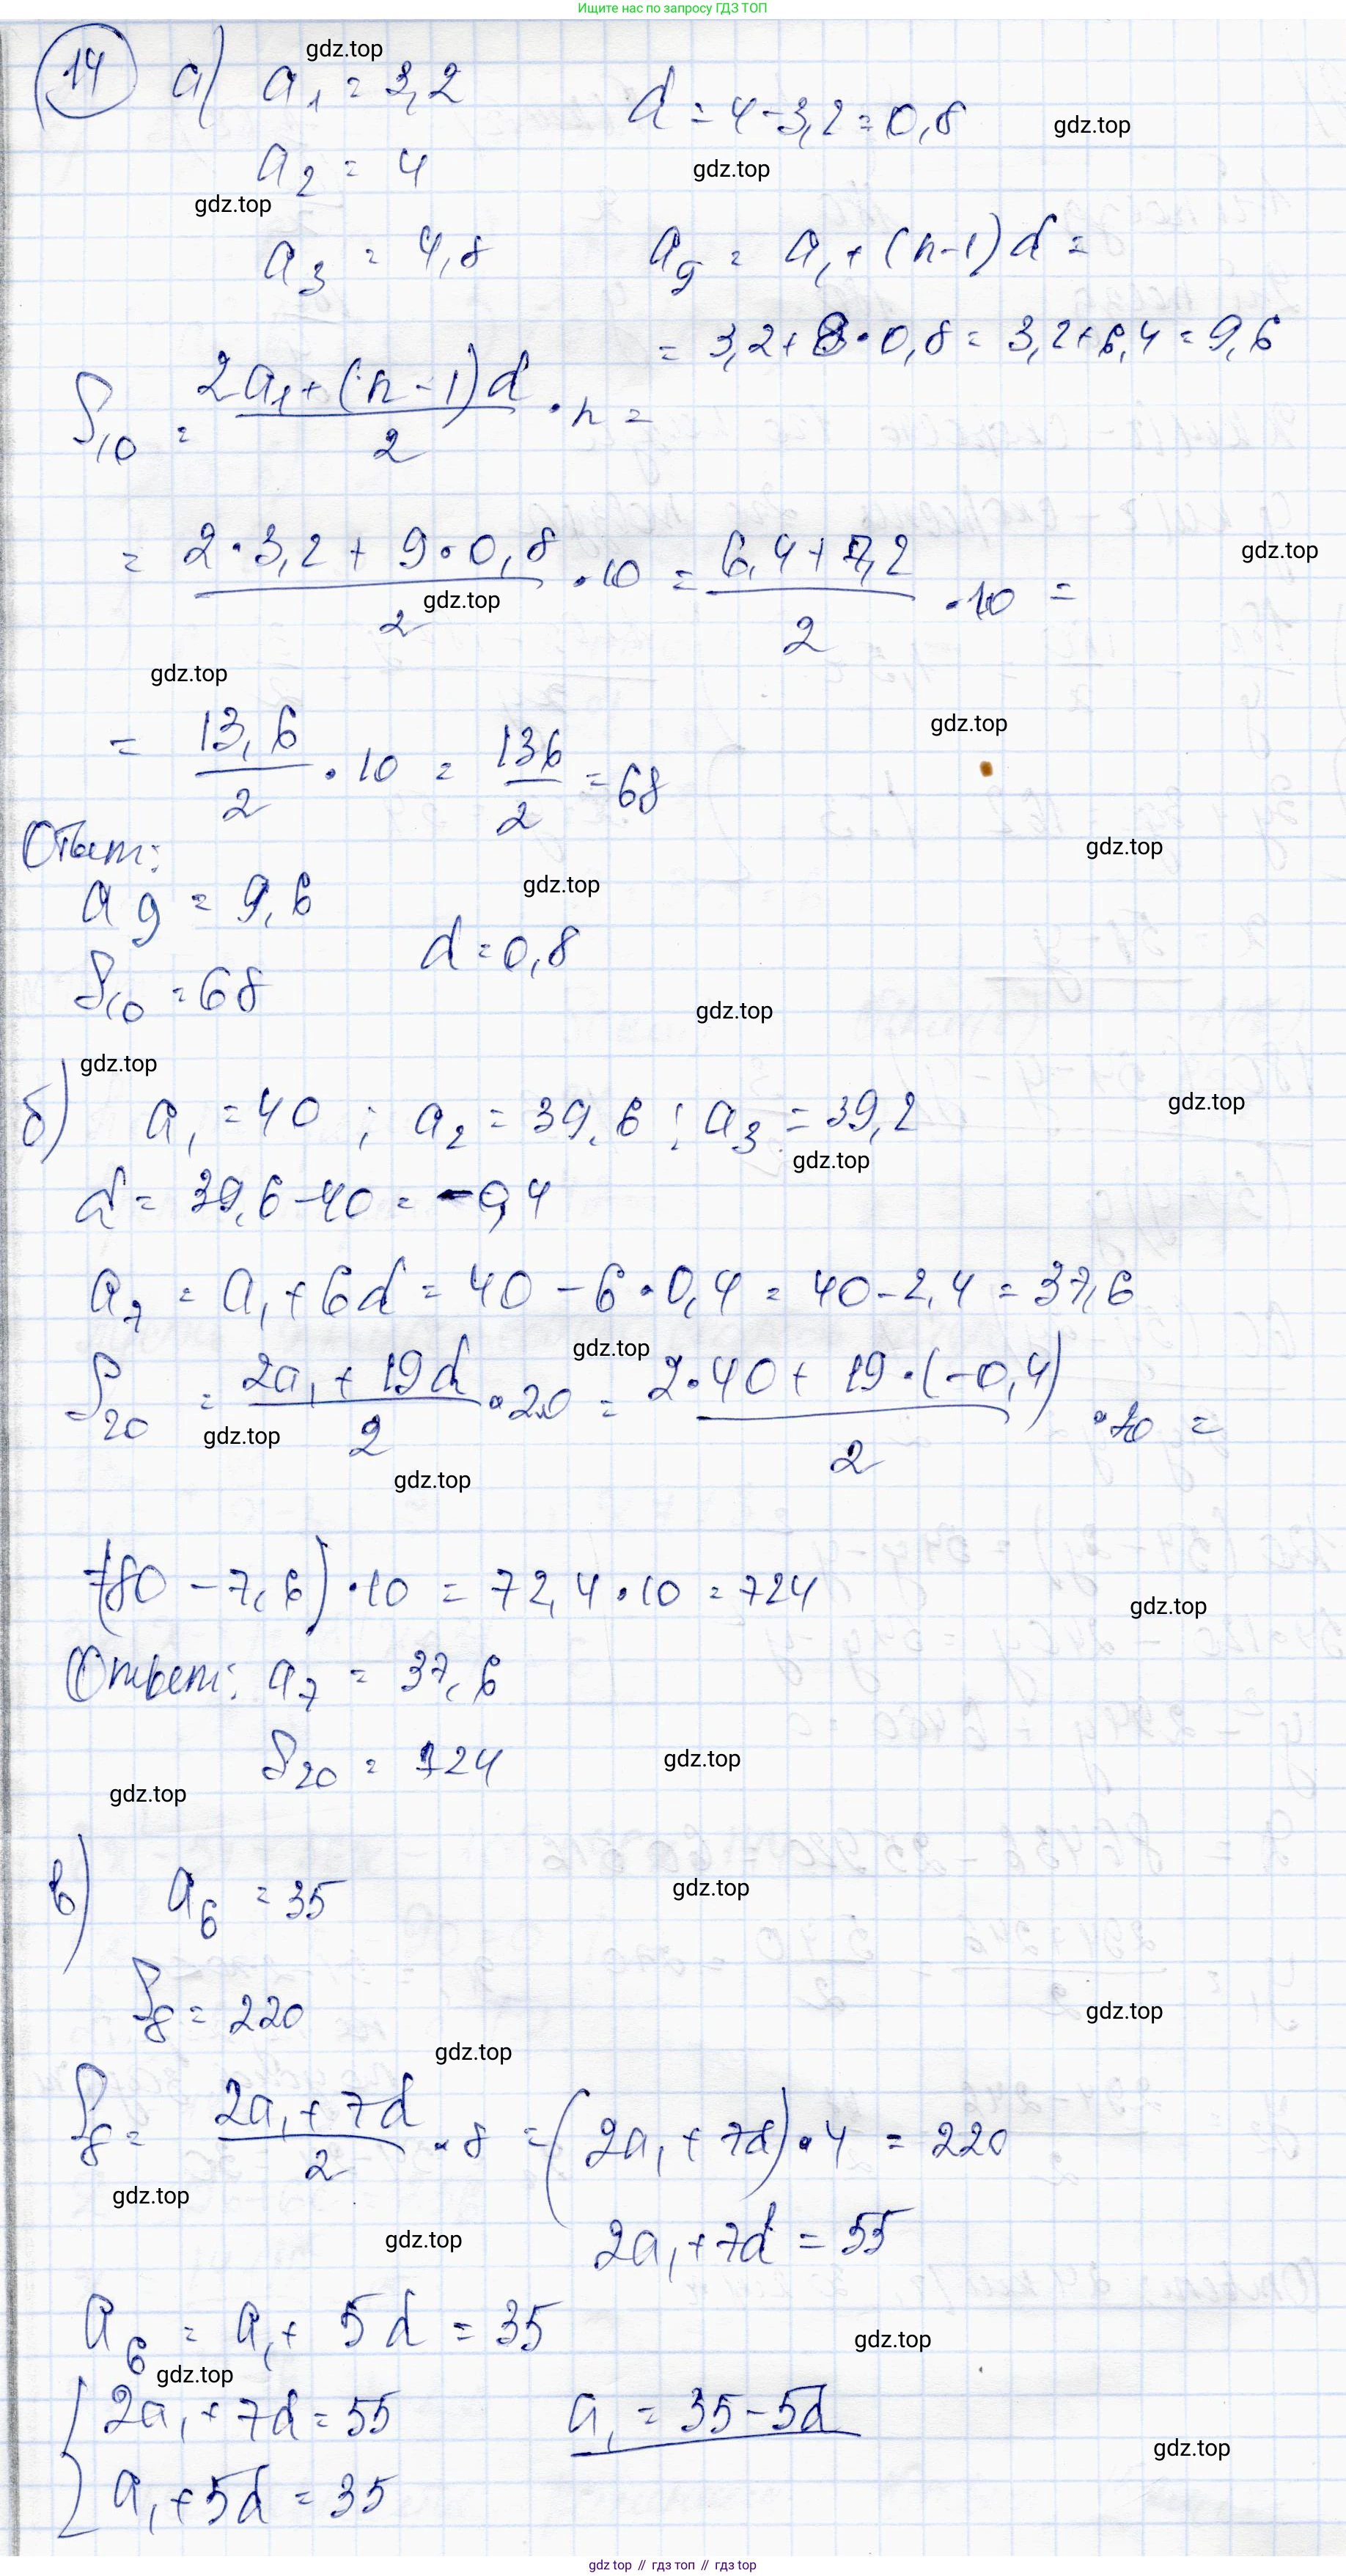 Ищите нас по запросу ГДЗ ТОП
14 а) a₁ = 3,2 d = 4 - 3,2 = 0,8
a₂ = 4
a₃ = 4,8 a₉ = a₁ + (n-1)d =
= 3,2 + 8 · 0,8 = 3,2 + 6,4 = 9,6
S₁₀ = (2a₁ + (n-1)d)/2 · n =
= (2 · 3,2 + 9 · 0,8)/2 · 10 = (6,4 + 7,2)/2 · 10 =
= 13,6/2 · 10 = 136/2 = 68
Ответ:
a₉ = 9,6
d = 0,8
S₁₀ = 68
б) a₁ = 40 ; a₂ = 39,6 ; a₃ = 39,2
d = 39,6 - 40 = -0,4
a₇ = a₁ + 6d = 40 - 6 · 0,4 = 40 - 2,4 = 37,6
S₂₀ = (2a₁ + 19d)/2 · 20 = (2 · 40 + 19 · (-0,4))/2 · 20 =
= (80 - 7,6) · 10 = 72,4 · 10 = 724
Ответ: a₇ = 37,6
S₂₀ = 724
в) a₆ = 35
S₈ = 220
S₈ = (2a₁ + 7d)/2 · 8 = (2a₁ + 7d) · 4 = 220
2a₁ + 7d = 55
a₆ = a₁ + 5d = 35
{ 2a₁ + 7d = 55 a₁ = 35 - 5d
a₁ + 5d = 35
gdz.top // гдз топ // gdz.top